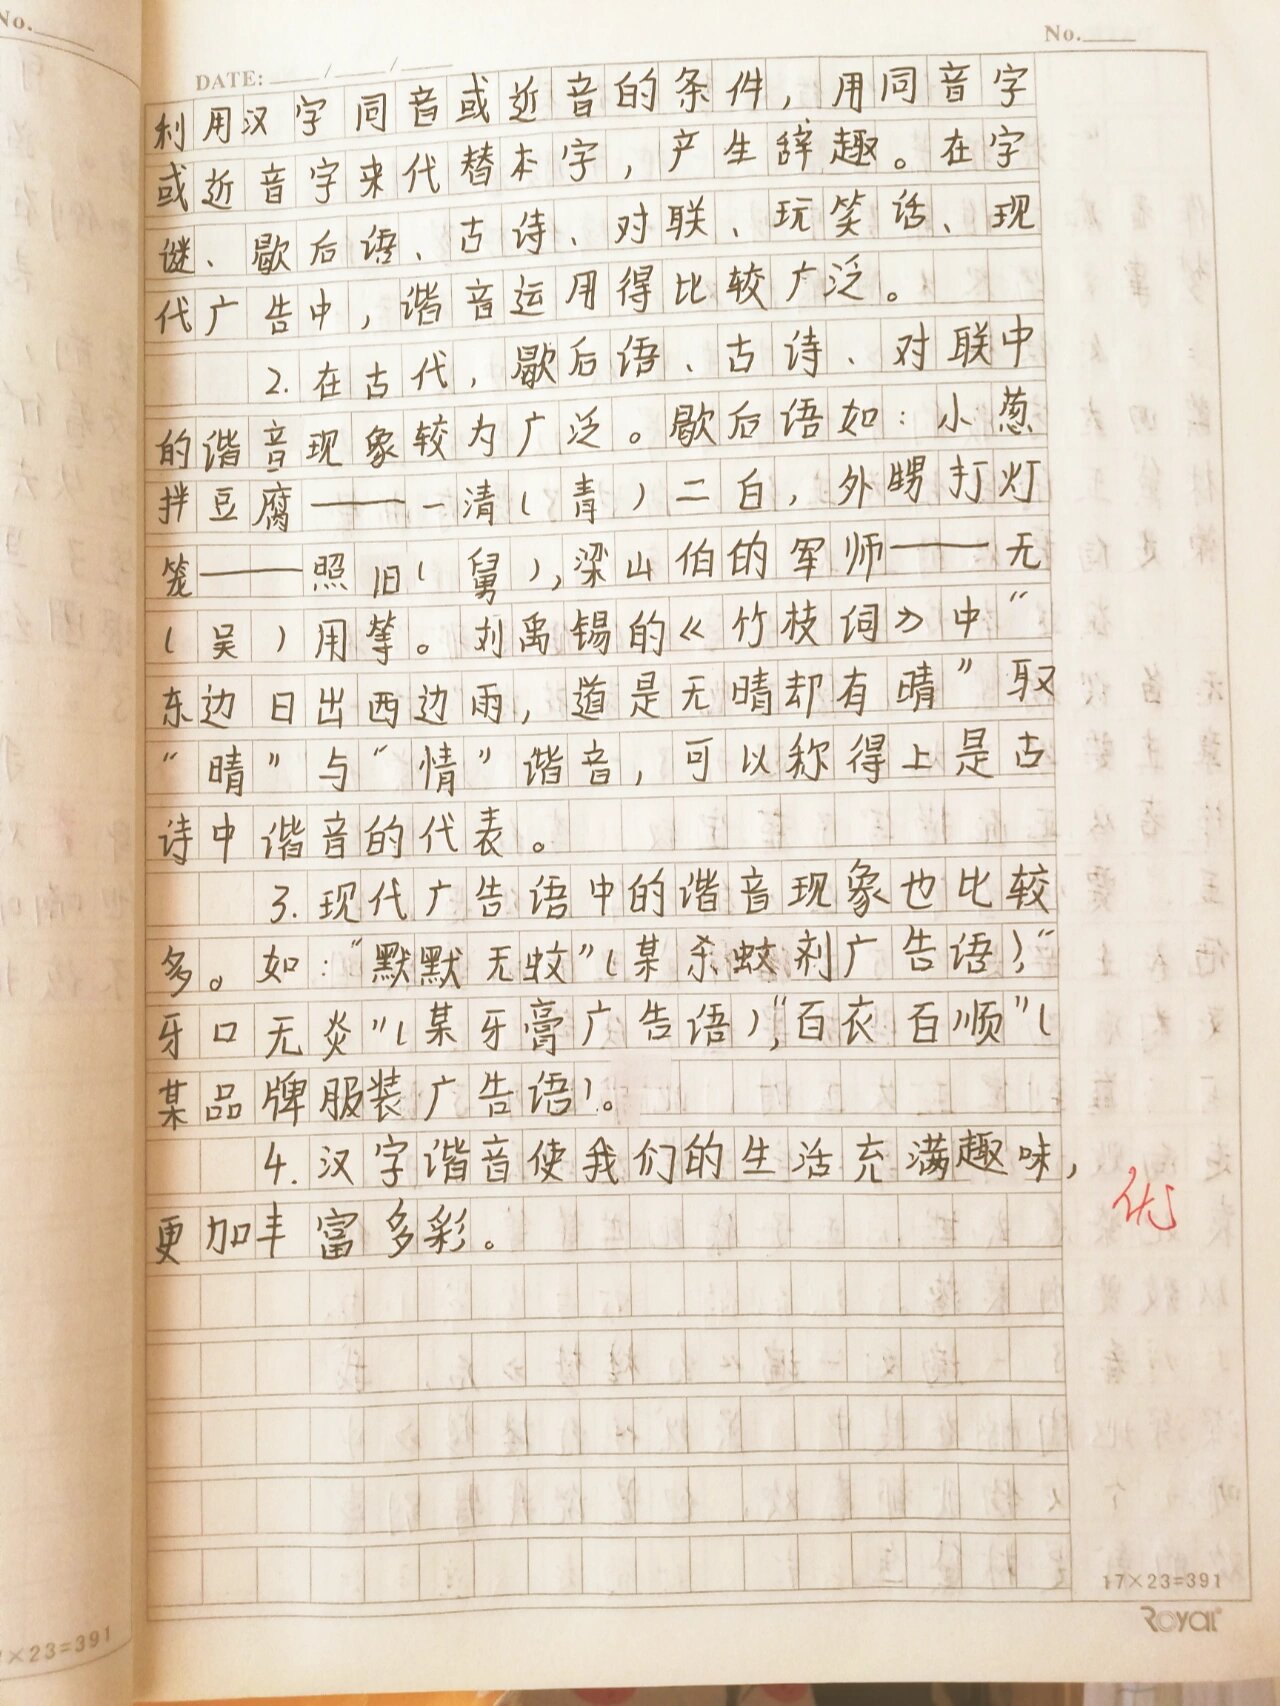 No.
No.
DATE: / /
利用汉字同音或近音的条件，用同音字
或近音字来代替本字，产生辞趣。在字
谜、歇后语、古诗、对联、玩笑话、现
代广告中，谐音运用得比较广泛。
2.在古代，歇后语、古诗、对联中
的谐音现象较为广泛。歇后语如：小葱
拌豆腐——一清（青）二白，外甥打灯
笼——照旧（舅），梁山伯的军师——无
（吴）用等。刘禹锡的《竹枝词》中“
东边日出西边雨，道是无晴却有晴”取
“晴”与“情”谐音，可以称得上是古
诗中谐音的代表。
3.现代广告语中的谐音现象也比较
多。如：“默默无蚊”（某杀蚊剂广告语），“
牙口无炎”（某牙膏广告语），“百衣百顺”（
某品牌服装广告语）。
4.汉字谐音使我们的生活充满趣味，
更加丰富多彩。
优
17×23=391
Royal
×23=391